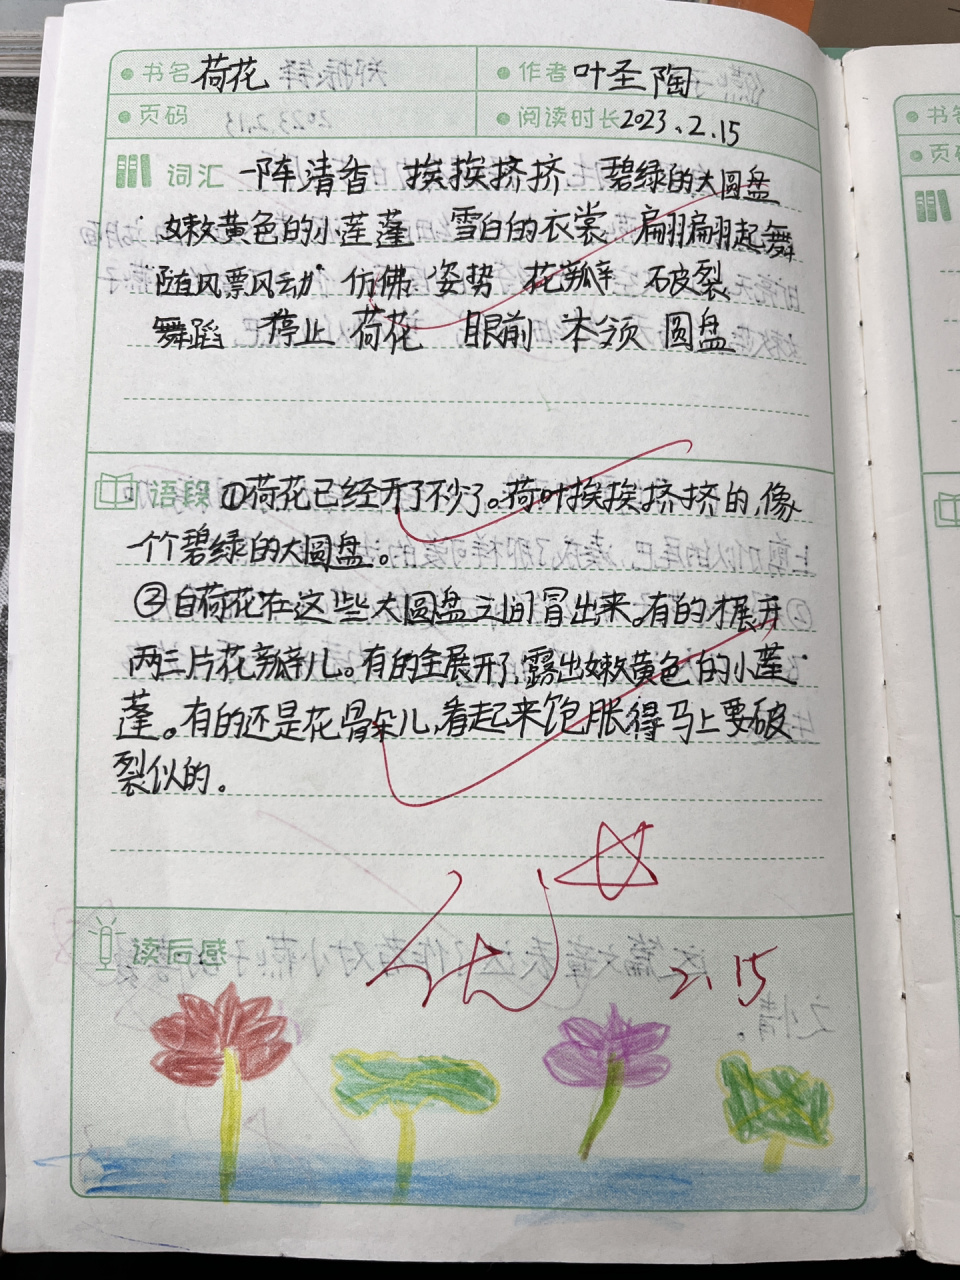 书名 荷花 作者 叶圣陶
页码 阅读时长 2023.2.15
词汇 一阵清香 挨挨挤挤 碧绿的大圆盘
嫩黄色的小莲蓬 雪白的衣裳 翩翩起舞
随风飘动 仿佛 姿势 花瓣 破裂
舞蹈 停止 荷花 眼前 本领 圆盘
语段 ①荷花已经开了不少了。荷叶挨挨挤挤的,像
一个个碧绿的大圆盘。
②白荷花在这些大圆盘之间冒出来。有的才展开
两三片花瓣儿。有的全展开了,露出嫩黄色的小莲
蓬。有的还是花骨朵儿,看起来饱胀得马上要破
裂似的。
优
读后感 2.15
书名
页码